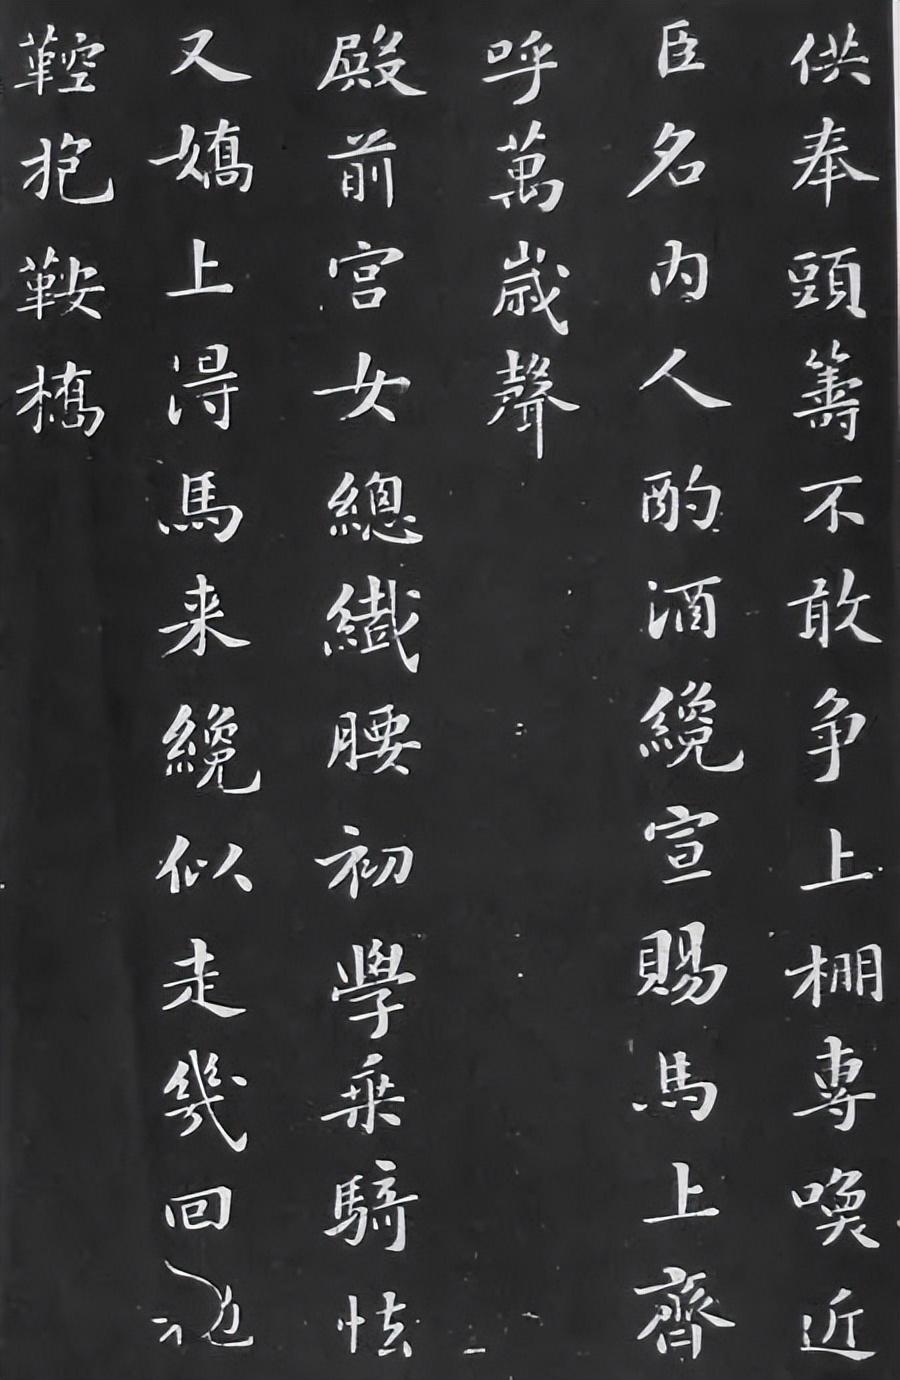 供奉頭籌不敢争上棚専喚近
臣名内人酌酒纔宣賜馬上齊
呼萬歲聲
殿前宫女總纖腰初學乗騎怯
又嬌上得馬来纔似走幾回
鞚抱鞍橋